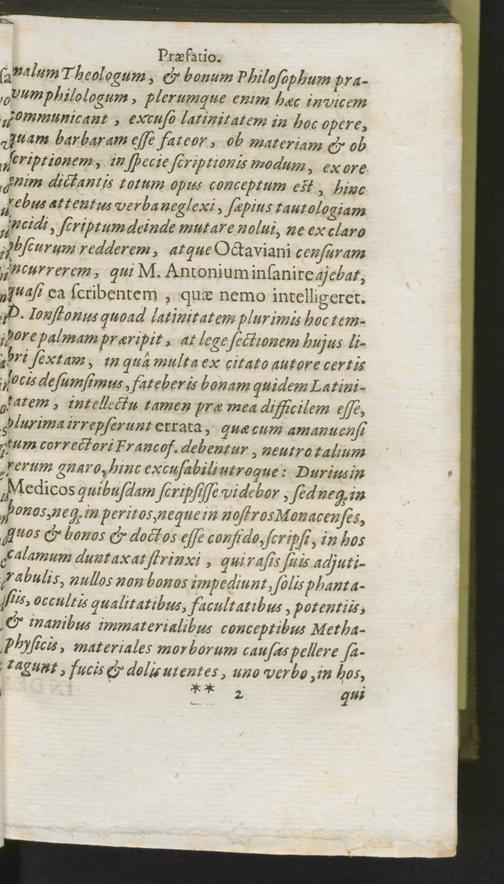 Præfatio.
malum Theologum, & bonum Philoſophum pra-
vum philologum, plerumque enim hæc invicem
communicant, excuſo latinitatem in hoc opere,
quam barbaram eſſe fateor, ob materiam & ob
ſcriptionem, in ſpecie ſcriptionis modum, ex ore
enim dictantis totum opus conceptum eſt, hinc
rebus attentus verba neglexi, ſæpius tautologiam
incidi, ſcriptum deinde mutare nolui, ne ex claro
obſcurum redderem, atque Octaviani cenſuram
incurrerem, qui M. Antonium inſanire ajebat,
quaſi ea ſcribentem, quæ nemo intelligeret.
D. Ionſtonus quoad latinitatem plurimis hoc tem-
pore palmam præripit, at lege ſectionem hujus li-
bri ſextam, in quâ multa ex citato autore certis
locis deſumſimus, fateberis bonam quidem Latini-
tatem, intellectu tamen præ mea difficilem eſſe,
plurima irrepſerunt errata, quæ cum amanuenſi
tum correctori Francof. debentur, neutro talium
rerum gnaro, hinc excuſabili utroque: Durius in
Medicos quibuſdam ſcripſiſſe videbor, ſed neq, in
bonos, neq, in peritos, neque in noſtros Monacenſes,
quos & bonos & doctos eſſe confido, ſcripſi, in hos
calamum duntaxat ſtrinxi, qui raſis ſuis adjuti-
rabulis, nullos non bonos impediunt, ſolis phanta-
ſiis, occultis qualitatibus, facultatibus, potentiis,
& inanibus immaterialibus conceptibus Metha-
phyſicis, materiales morborum cauſas pellere ſa-
tagunt, fucis & dolis utentes, uno verbo, in hos,
** 2 qui